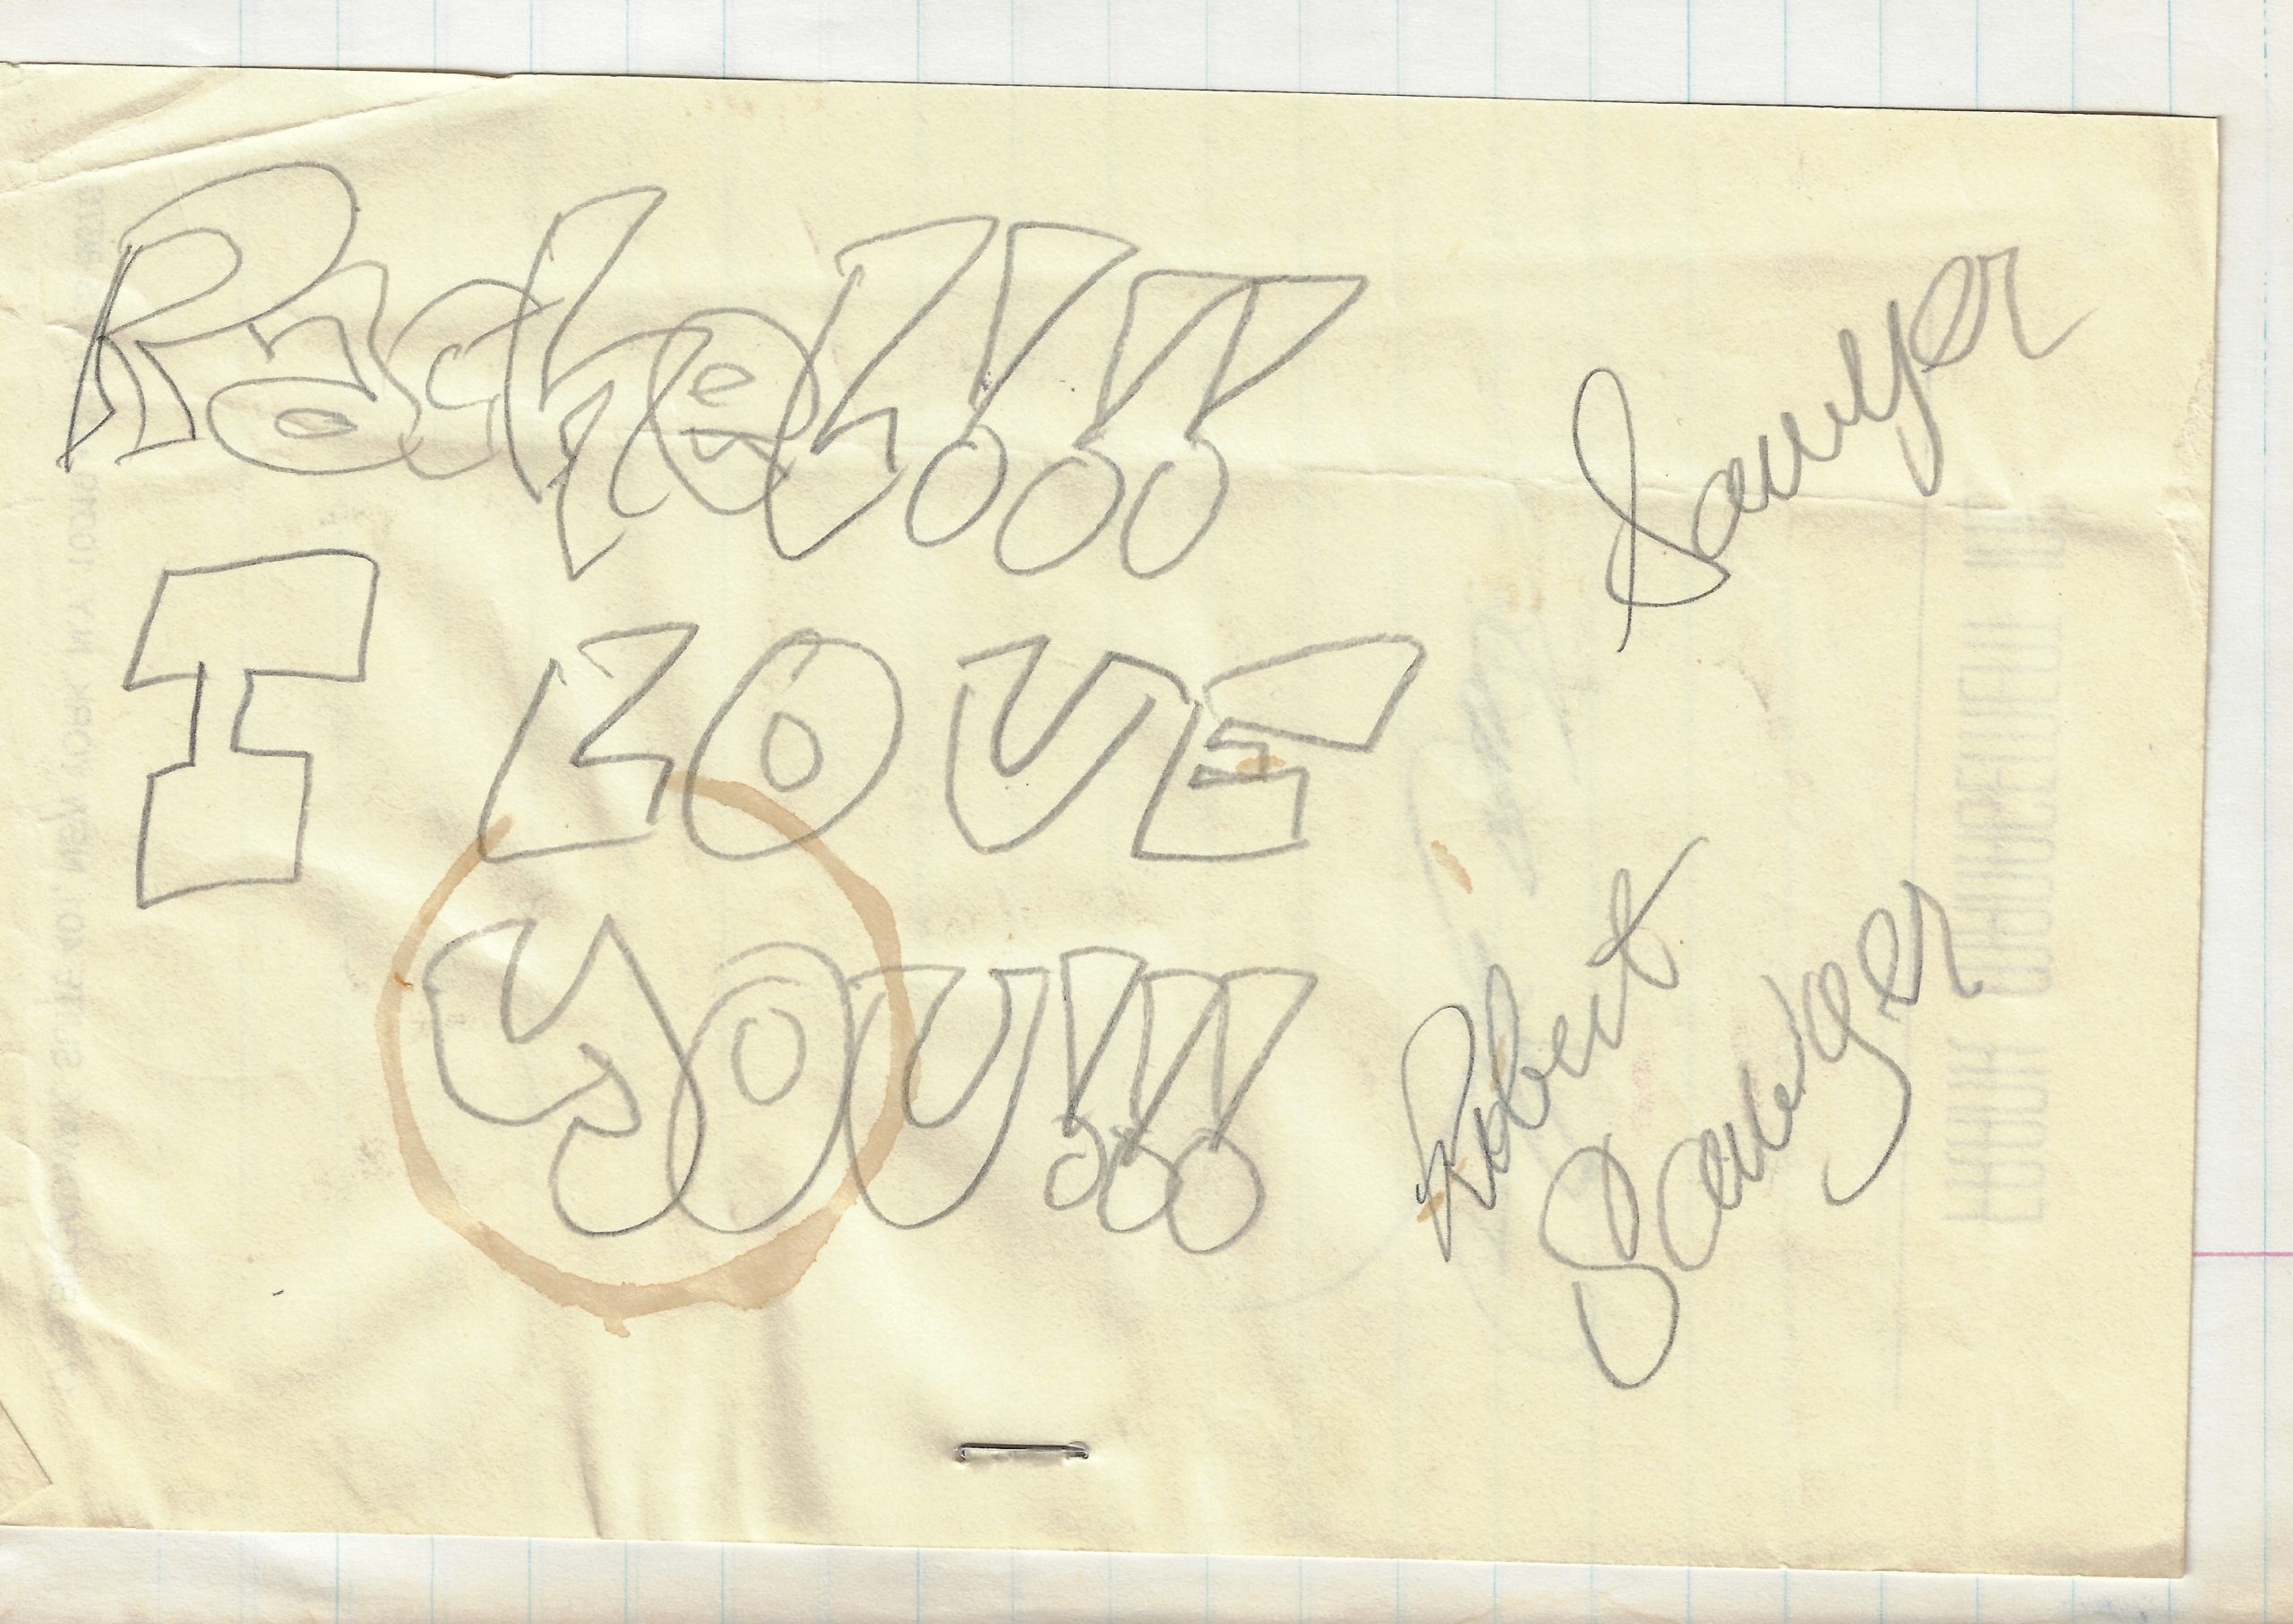 Rachel!!!
I LOVE
YOU!!!
Sawyer
Robert
Sawyer